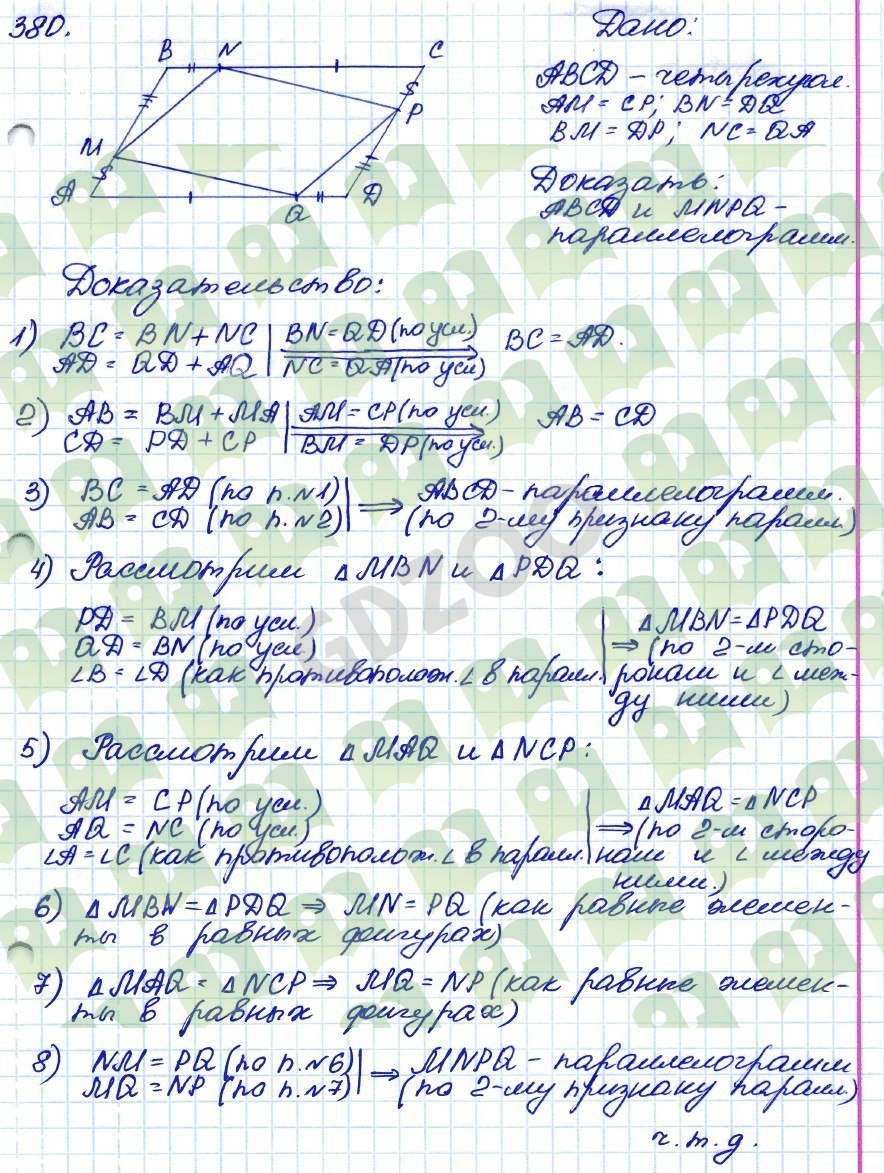 380.
Дано:
B N C
ABCD – четырехугол.
$ P
AM = CP; BN = DQ
BM = DP; NC = QA
M $
A Q D
Доказать:
ABCD и MNPQ –
параллелограмм.
Доказательство:
1) BC = BN + NC | BN = QD (по усл.) BC = AD.
AD = QD + AQ | NC = QA (по усл)
2) AB = BM + MA | AM = CP (по усл.) AB = CD
CD = PD + CP | BM = DP (по усл.)
3) BC = AD (по п.№1) | ⇒ ABCD – параллелограмм.
AB = CD (по п.№2) | (по 2-му признаку парал.)
4) Рассмотрим △MBN и △PDQ:
PD = BM (по усл.) | △MBN = △PDQ
QD = BN (по усл.) | ⇒ (по 2-м сто-
∠B = ∠D (как противополож. ∠ в паралл. | ронам и ∠ меж-
ду ними)
5) Рассмотрим △MAQ и △NCP:
AM = CP (по усл.) | △MAQ = △NCP
AQ = NC (по усл) | ⇒ (по 2-м сторо-
∠A = ∠C (как противополож. ∠ в паралл. | нам и ∠ между
ними.)
6) △MBN = △PDQ ⇒ MN = PQ (как равные элемен-
ты в равных фигурах)
7) △MAQ = △NCP ⇒ MQ = NP (как равные элемен-
ты в равных фигурах)
8) NM = PQ (по п.№6) | ⇒ MNPQ – параллелограмм
MQ = NP (по п.№7) | (по 2-му признаку парал.)
ч.т.д.
GDZOO